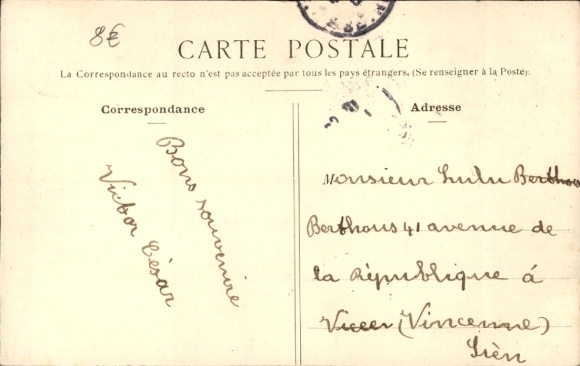 8€
CARTE POSTALE
La Correspondance au recto n'est pas acceptée par tous les pays étrangers. (Se renseigner à la Poste):
Correspondance
Bons souvenire
Victor César
Adresse
Monsieur Lulu Berthous
Berthous 41 avenue de
la République á
(Vincenne)